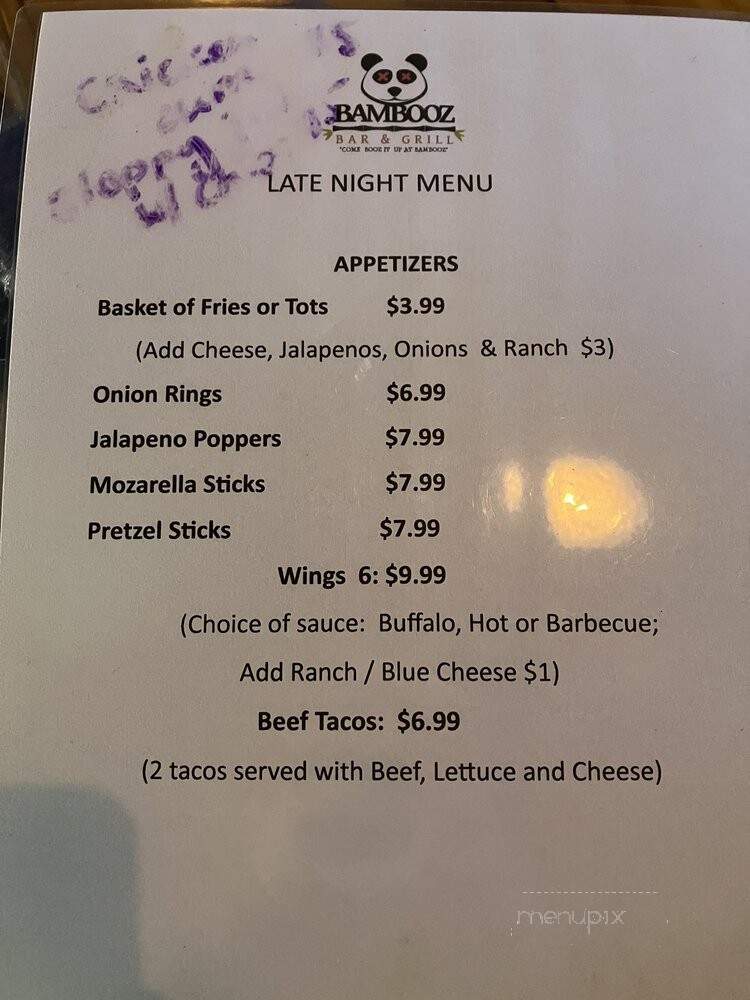 BAMBOOZ
BAR & GRILL
"COME BOOZ IT UP AT BAMBOOZ"
LATE NIGHT MENU
APPETIZERS
Basket of Fries or Tots $3.99
(Add Cheese, Jalapenos, Onions & Ranch $3)
Onion Rings $6.99
Jalapeno Poppers $7.99
Mozarella Sticks $7.99
Pretzel Sticks $7.99
Wings 6: $9.99
(Choice of sauce: Buffalo, Hot or Barbecue;
Add Ranch / Blue Cheese $1)
Beef Tacos: $6.99
(2 tacos served with Beef, Lettuce and Cheese)
menupix